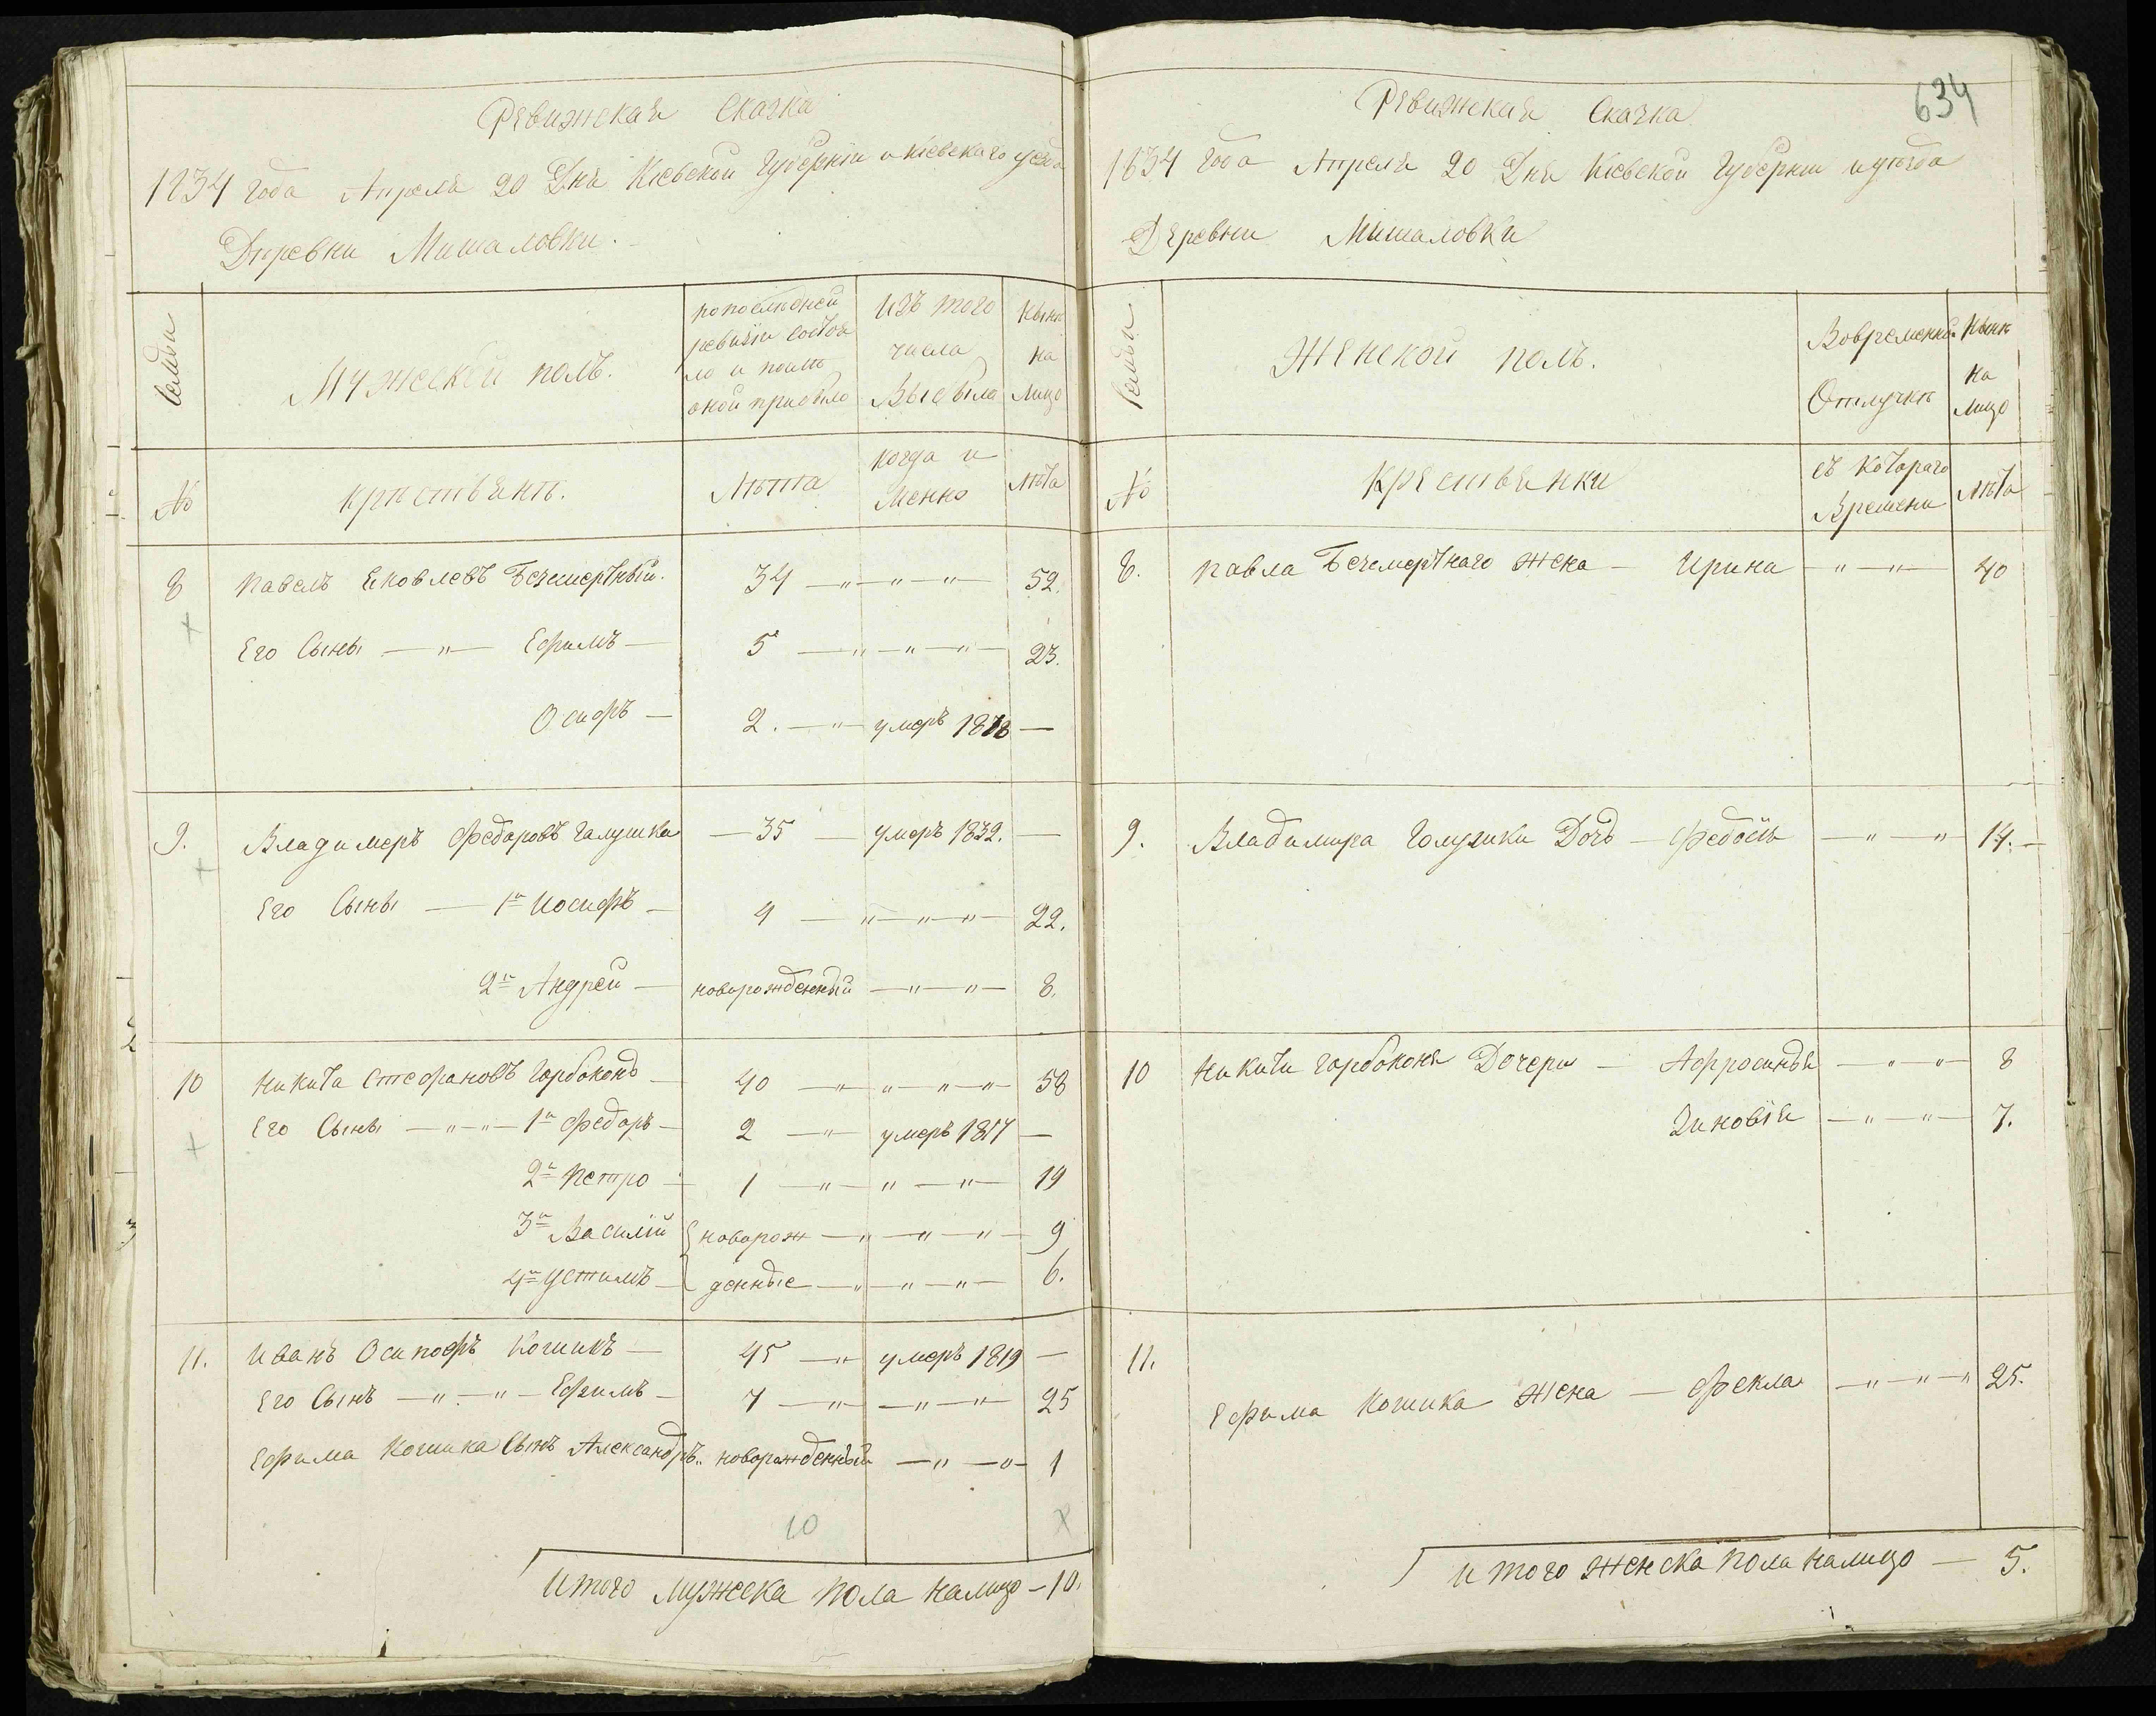 Ревижская Скаска
1834 года Апреля 20 Дня Кіевской Губерніи и кіевскаго уезда
Деревни Мишаловки.
Семьи
Мужескій полъ.
попоследней ревизіи состояло и после оной прибыло
Изъ того числа Выбыло
Ныне на Лицо
№
крестьяне.
Лѣта
когда и Менно
Лѣта
8 Павелъ Яковлевъ Безсмертный. 34 — " — " — " — 52.
Его Сыны — " — Ефимъ — 5 — " — " — " — 23.
Осифъ — 2. — " — умеръ 1818 —
9. Владимеръ Федаровъ Галушка — 35 — умеръ 1832. —
Его Сыны — 1й Иосифъ — 4 — " — " — " — 22.
2й Андрей — новорожденный — " — " — 8.
10 Никита Стефановъ Горбоконь — 40 — " — " — " — " 58
Его Сыны — " — " — 1й Федоръ — 2 — " — умеръ 1817 —
2й Петро — 1 — " — " — " — 19
3й Василій { новорож — " — " — " — 9
4й Устимъ — { денные — " — " — " — 6.
11. Иванъ Осипофъ Кошикъ — 45 — " умеръ 1819 —
Его Сынъ — " — " — Ефимъ — 7 — " — " — " 25
Ефима Кошика Сынъ Александръ.. новорожденный — " — " — 1
10
х
Итого мужеска пола налицо — 10.
634
Ревижская Скаска
1834 года Апреля 20 Дня Кіевской Губерніи и уѣзда
Деревни Мишаловки
Семьи
Женской полъ.
Вовременной Отлучке
Ныне на лицо
№
Крестьянки
съ Котораго Времени
Лѣта
8. Павла Безсмертнаго жена — Ирина — " — " — 40
9. Владимира Голушки Дочь — Федосія — " — " 14. —
10 Никиты Горбоконя Дочери — Афросинья — " — " 8
Зиновія — " — " — 7.
11. Ефима Кошика Жена — Фекла — " — " — " 25.
Итого женска пола налицо — 5.